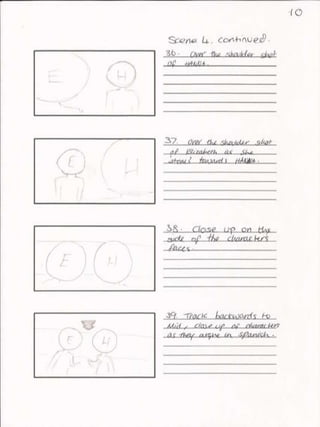 10
Scene 4, continued.
36. Over the shoulder shot
of HANNA.
E H
37. Over the shoulder shot
of Elizabeth as she
towards HANNA.
E H
38. Close up on the
side of the characters
faces.
E H
39. Track backwards to
Mid, close up of characters
as they argue in Spanish.
E H